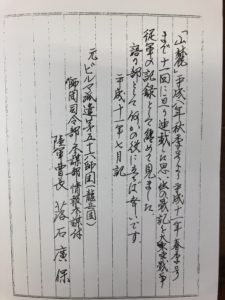 「山麓」平成八年秋季号より平成十一年春季号
まで十一回に亘り連載した思い出の戦記を大東亜戦争
従軍の記録として纏めて見ました
語り部として何かの役に立てば幸いです
平成十一年七月記
元 ビルマ派遣第五十六師団(龍兵団)
師団司令部 参謀部 情報
陸軍曹長 落石廣保